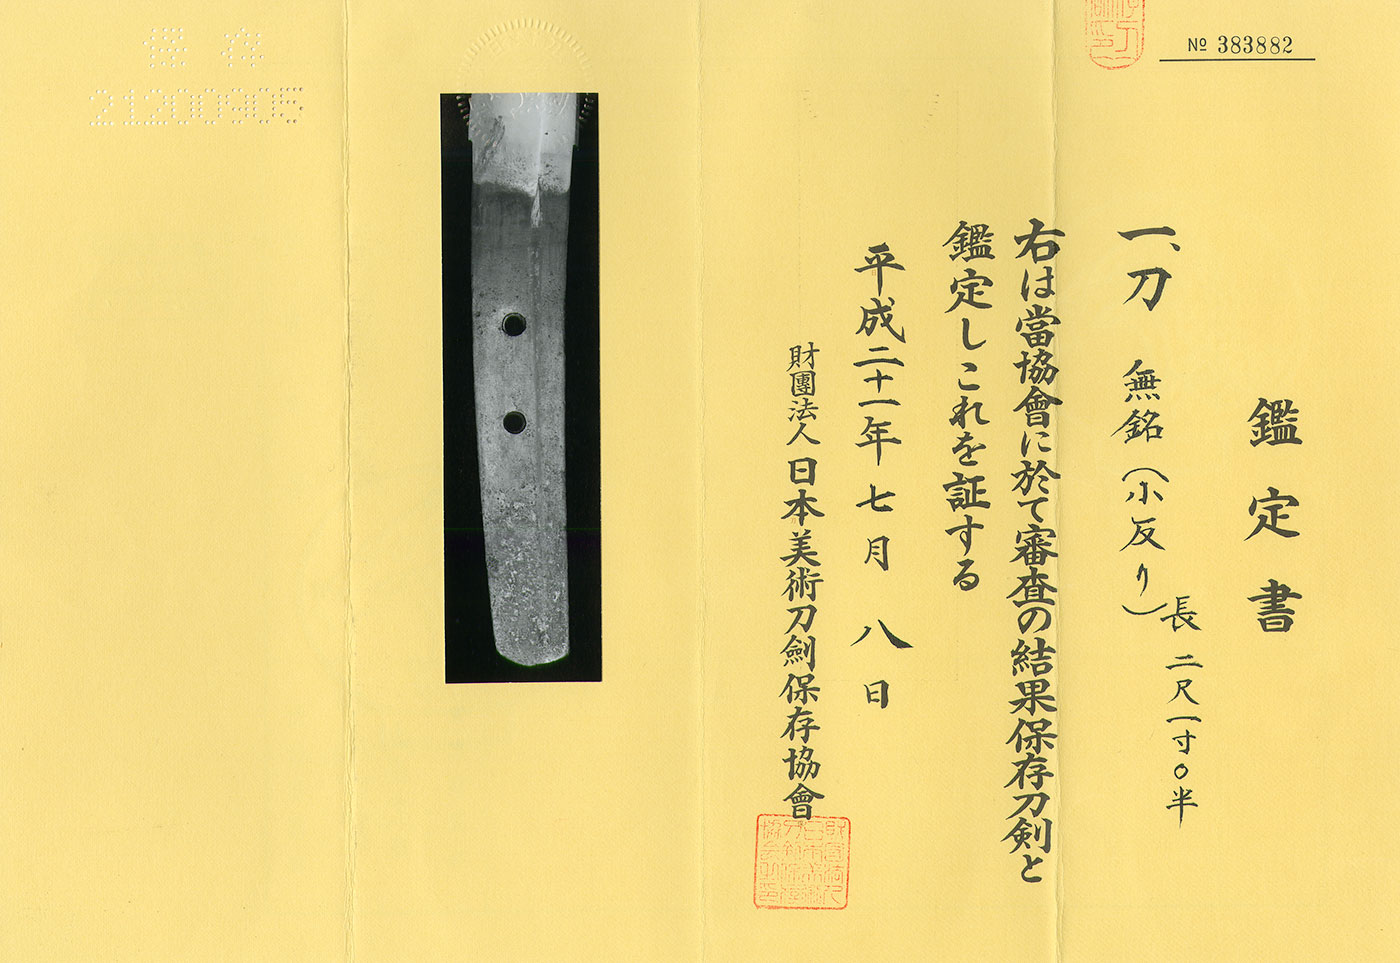 № 383882
鑑定書
一、刀 無銘（小反り）
長 二尺一寸〇半
右は當協會に於て審査の結果保存刀剣と
鑑定しこれを証する
平成二十一年七月八日
財團法人日本美術刀劍保存協會
保存
21200905